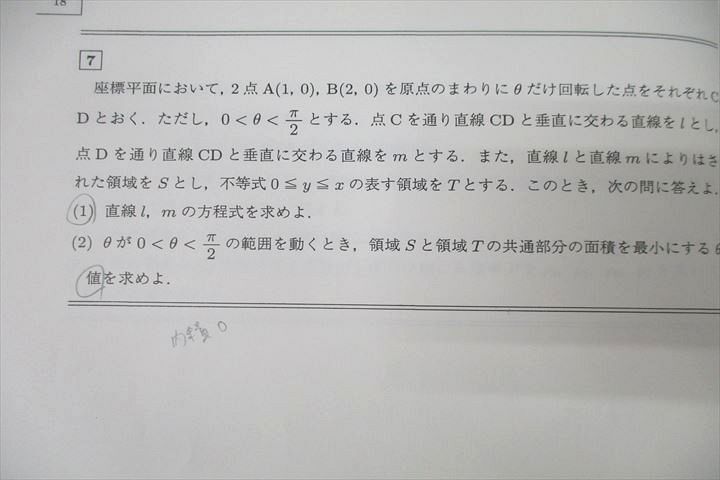 18
7
座標平面において, 2点 A(1, 0), B(2, 0) を原点のまわりに θ だけ回転した点をそれぞれ C
D とおく. ただし, 0 < θ < π/2 とする. 点 C を通り直線 CD と垂直に交わる直線を l とし,
点 D を通り直線 CD と垂直に交わる直線を m とする. また, 直線 l と直線 m によりはさ
れた領域を S とし, 不等式 0 ≦ y ≦ x の表す領域を T とする. このとき, 次の問に答えよ.
(1) 直線 l, m の方程式を求めよ.
(2) θ が 0 < θ < π/2 の範囲を動くとき, 領域 S と領域 T の共通部分の面積を最小にする θ
値を求めよ.
内積 0